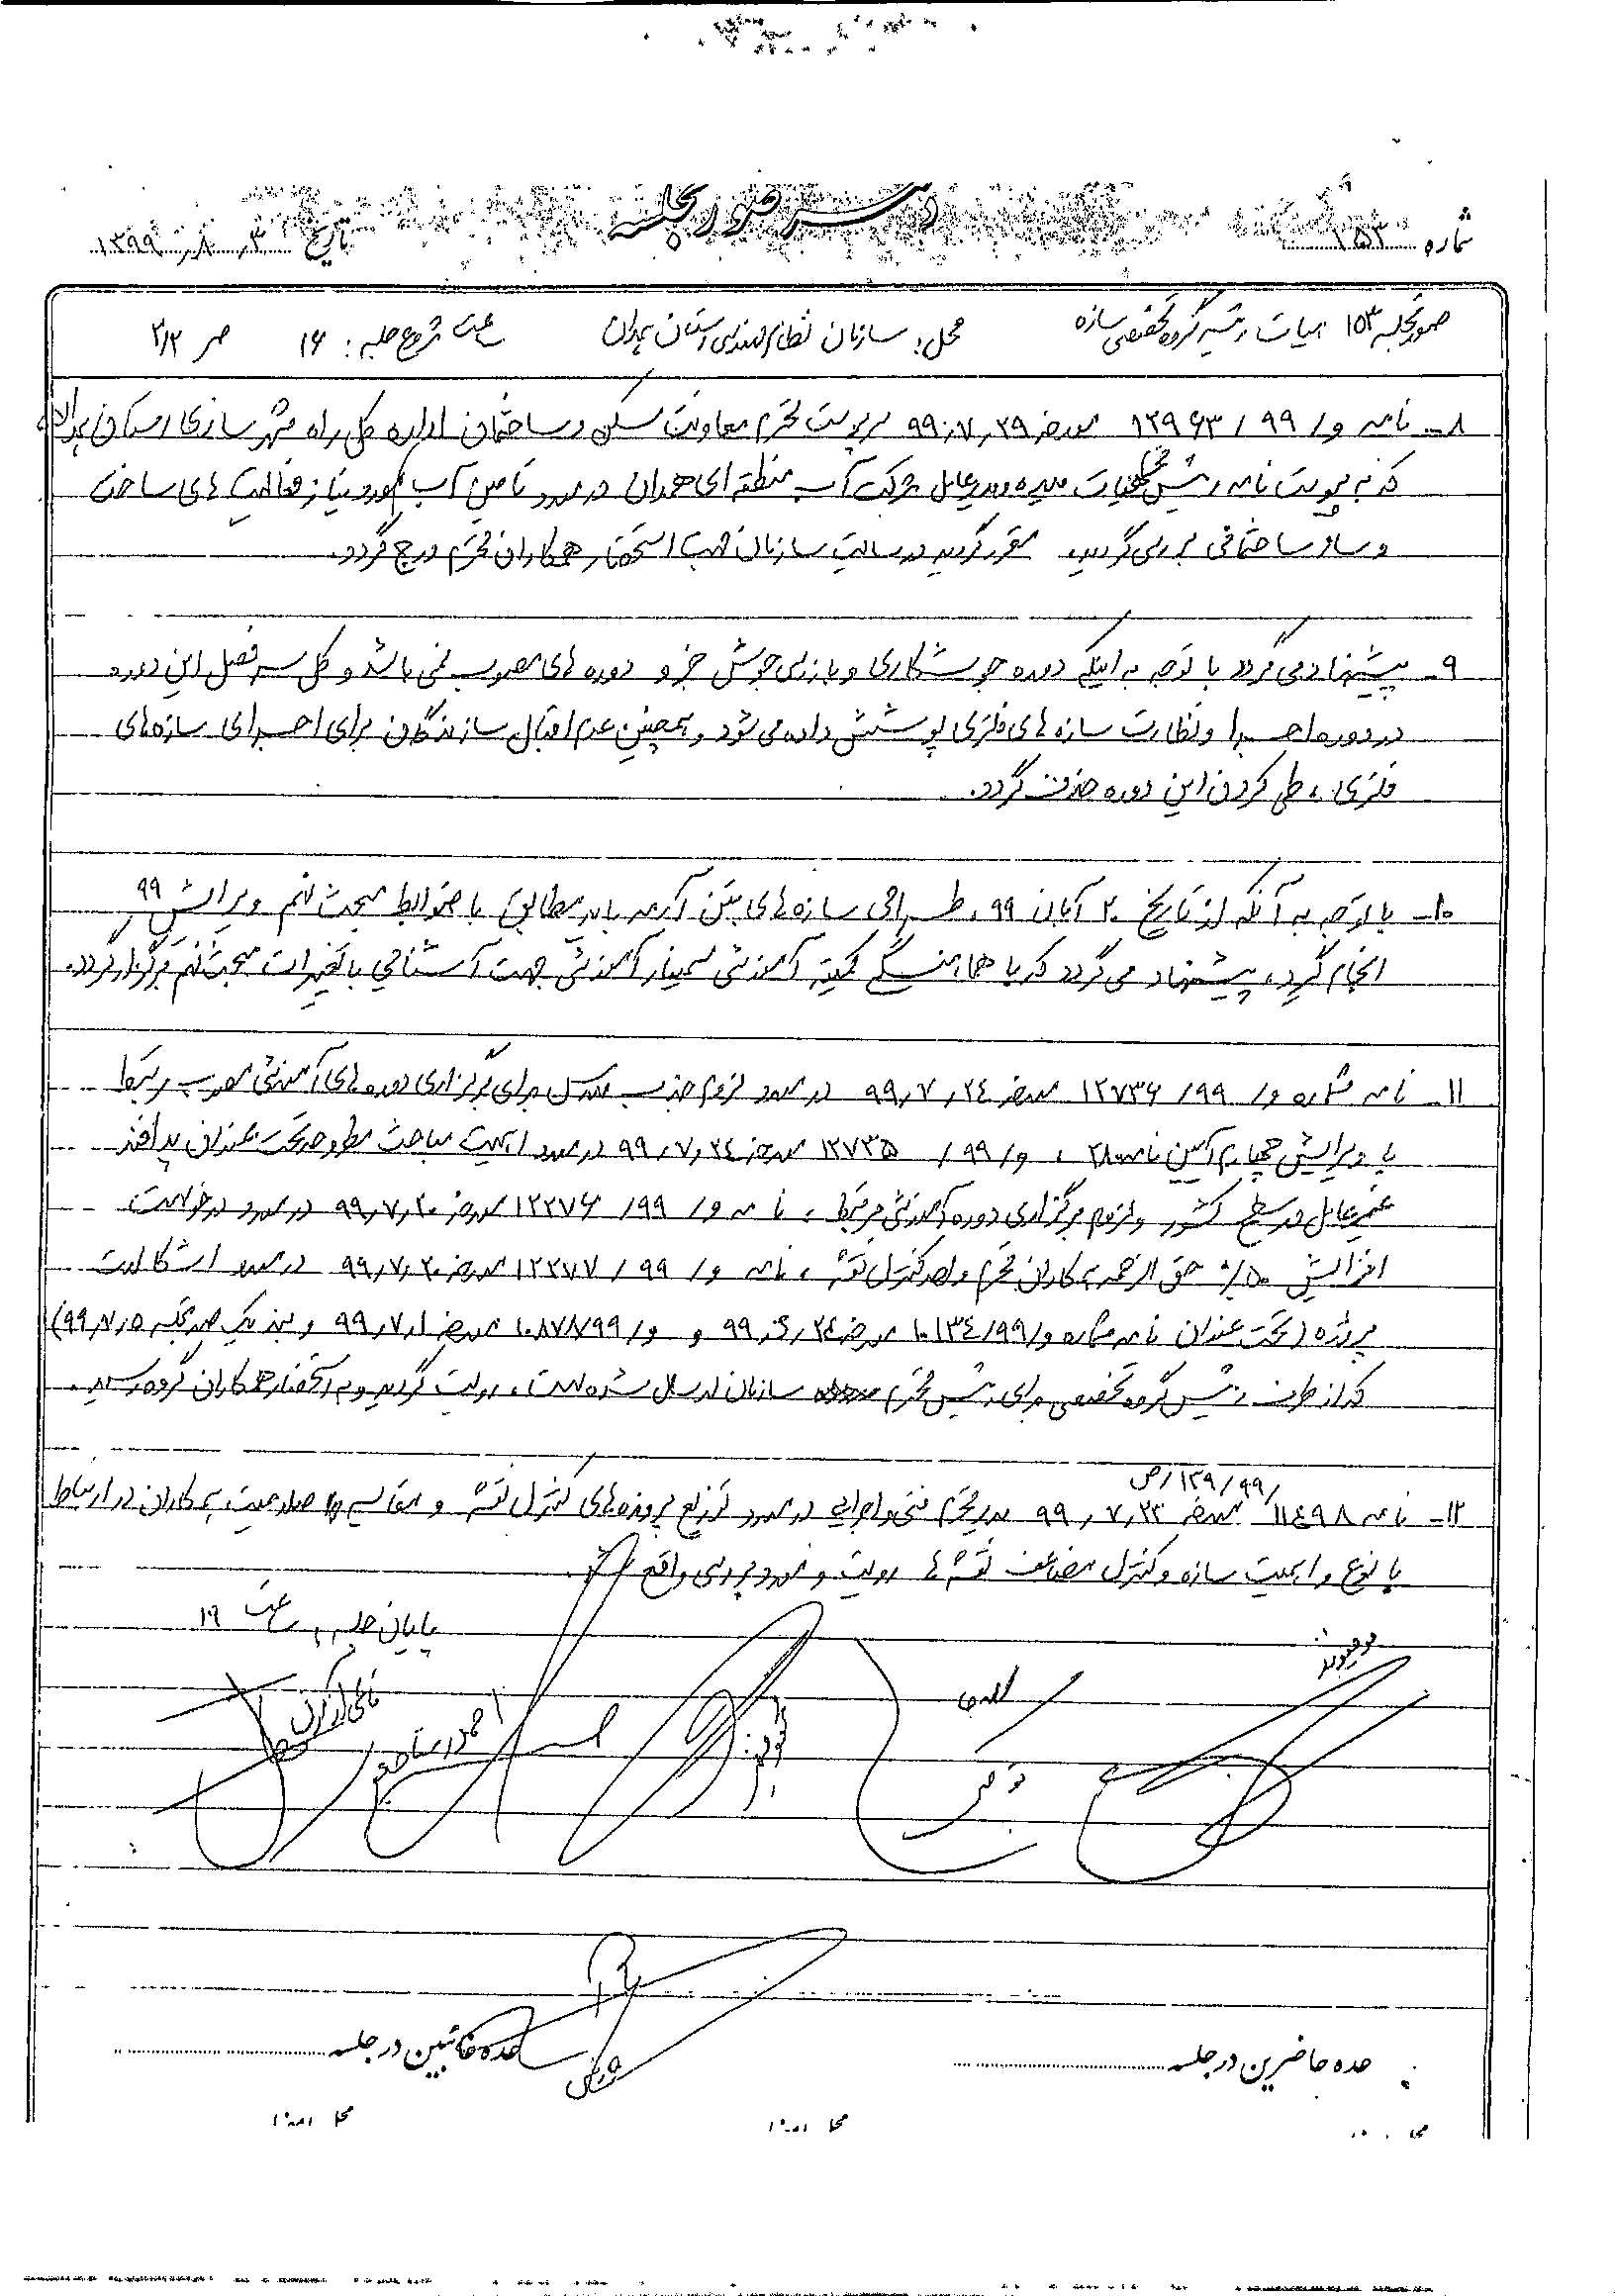 دفتر صورتجلسه
شماره ۱۵۳
تاریخ ۱۳۹۹/۸/۳
صورتجلسه ۱۵۳ هیات رئیسه گروه تخصصی سازه
محل: سازمان نظام مهندسی استان همدان
ساعت شروع جلسه: ۱۶
ص ۲/۲
۸- نامه و/ ۹۹/ ۱۲۹۶۳ مورخ ۹۹/۷/۲۹ سرپرست محترم معاونت مسکن و ساختمان اداره کل راه و شهرسازی استان همدان
که به پیوست نامه رئیس محترم هیات مدیره و مدیرعامل شرکت آب منطقه ای همدان در مورد تامین آب مورد نیاز فعالیت های ساخت
و ساز ساختمانی بررسی گردید. مقرر گردید در سایت سازمان جهت استحضار همکاران محترم درج گردد.
۹- پیشنهاد می گردد با توجه به اینکه دوره جوشکاری و بازرسی جوش جزو دوره های مصوب نمی باشد و کل سرفصل این دوره
در دوره اجرا و نظارت سازه های فلزی پوشش داده می شود و همچنین عدم اقبال سازندگان برای اجرای سازه های
فلزی، طی کردن این دوره حذف گردد.
۱۰- با توجه به آنکه از تاریخ ۲۰ آبان ۹۹، طراحی سازه های بتن آرمه باید مطابق با ضوابط مبحث نهم ویرایش ۹۹
انجام گیرد، پیشنهاد می گردد که با هماهنگی کمیته آموزش سمینار آموزشی جهت آشنائی با تغییرات مبحث نهم برگزار گردد.
۱۱- نامه شماره و/ ۹۹/ ۱۲۷۳۶ مورخ ۹۹/۷/۲۴ در مورد لزوم جذب مدرس برای برگزاری دوره های آموزشی مصوب مرتبط
با ویرایش چهارم آئین نامه ۲۸۰۰، و/ ۹۹/ ۱۲۷۳۵ مورخ ۹۹/۷/۲۴ در مورد اهمیت مباحث مطروحه تحت عنوان پدافند
غیرعامل در سطح کشور و لزوم برگزاری دوره آموزشی مرتبط، نامه و/ ۹۹/ ۱۲۲۷۶ مورخ ۹۹/۷/۲۰ در مورد درخواست
افزایش ۵۰٪ حق الزحمه همکاران محترم واحد کنترل نقشه، نامه و/ ۹۹/ ۱۲۲۷۷ مورخ ۹۹/۷/۲۰ در مورد اشکالات
پروژه (تحت عنوان نامه شماره و/۹۹/۱۰۱۳۴ مورخ ۹۹/۶/۲۴ و و/۱۰۸۷۸/۹۹ مورخ ۹۹/۷/۱ و بند یک صورتجلسه ۹۹/۷/۵)
که از طرف رئیس گروه تخصصی برای رئیس محترم سازمان ارسال شده است، رویت گردید و به استحضار همکاران گروه رسید.
۱۲- نامه ۱۱۴۹۸ /۱۲۹/۹۹/ص مورخ ۹۹/۷/۲۳ مدیر محترم فنی و اجرایی در مورد توزیع پروژه های کنترل نقشه و صلاحیت همکاران در ارتباط
با نوع و اهمیت سازه و کنترل مضاعف نقشه ها رویت و مورد بررسی واقع شد.
پایان جلسه ساعت ۱۹
عده حاضرین در جلسه
عده غائبین در جلسه
محل امضاء
محل امضاء